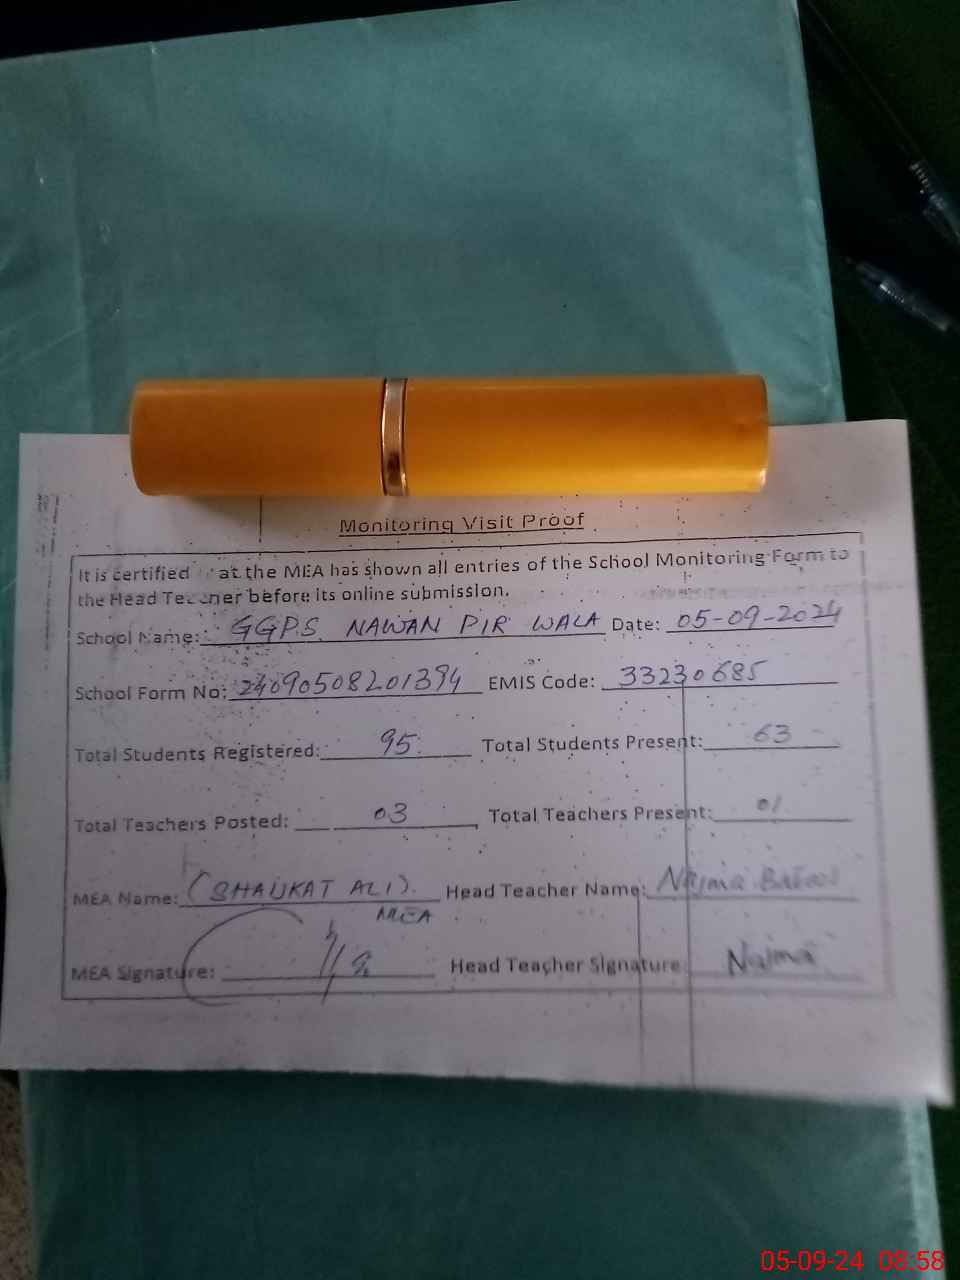 Monitoring Visit Proof
It is certified at the MEA has shown all entries of the School Monitoring Form to
the Head Teacher before its online submission.
School Name: GGPS NAWAN PIR WALA Date: 05-09-2024
School Form No: 24090508201394 EMIS Code: 33230685
Total Students Registered: 95 Total Students Present: 63
Total Teachers Posted: 03 Total Teachers Present: 01
MEA Name: (SHAUKAT ALI). Head Teacher Name: Najma Batool
MEA
MEA Signature: Head Teacher Signature Najma
05-09-24 08:58